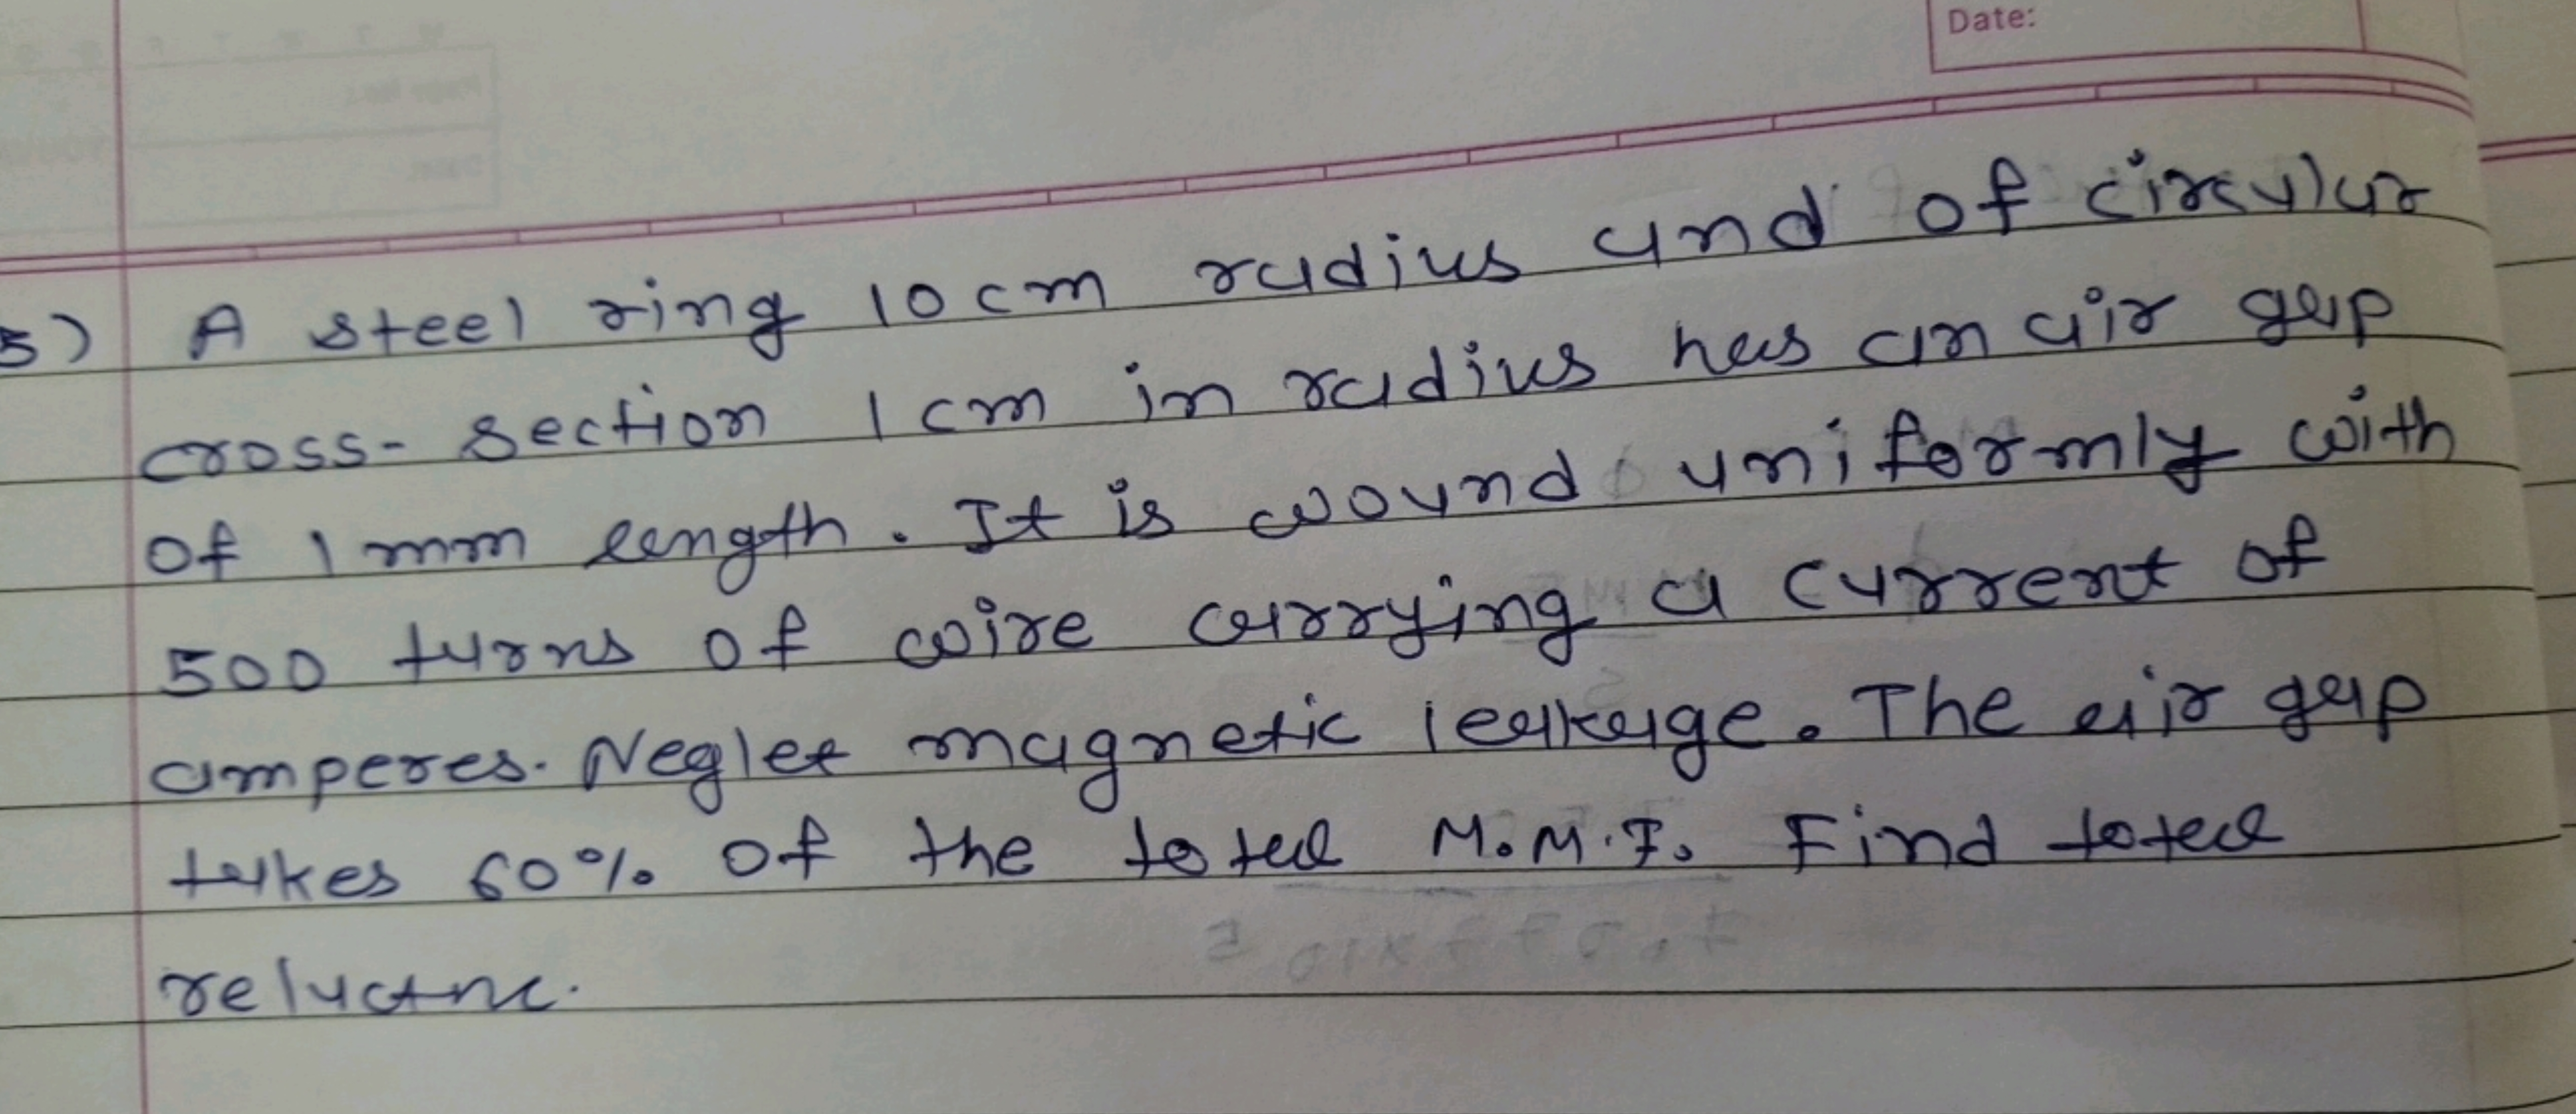 Date:
5) A steel ring 10 cm radius and of circular
cross-section 1 cm in radius has an air gap
of 1 mm length. It is wound uniformly with
500 turns of wire carrying a current of
amperes. Neglet magnetic leakage. The air gap
takes 60% of the total M.M.F. Find total
reluctnc.